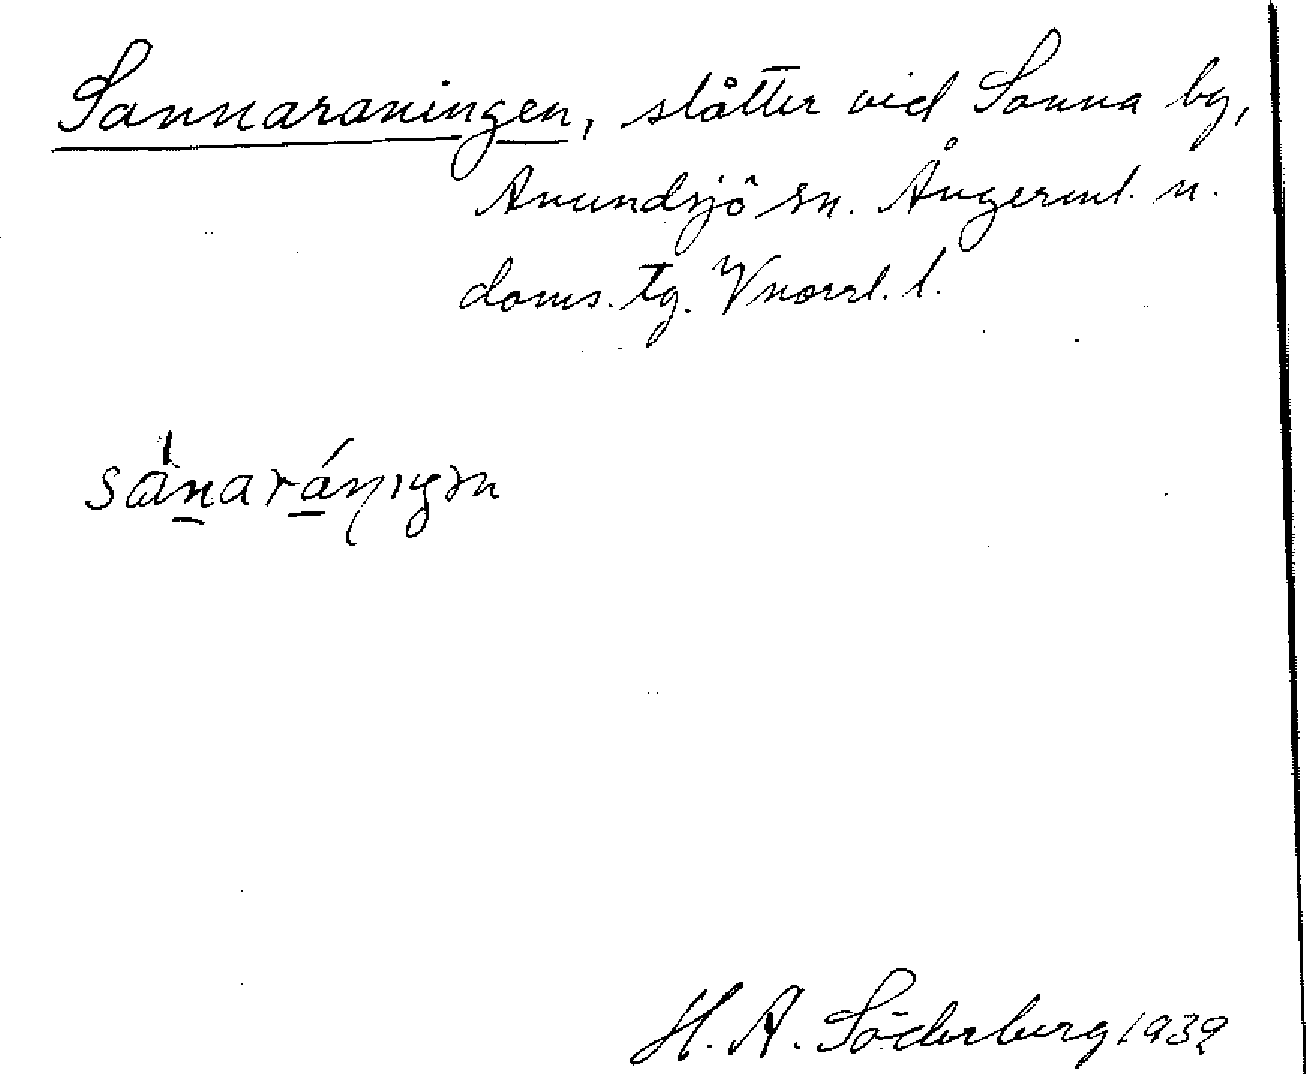 Sannaraningen, slåtter vid Sanna by,
Anundsjö sn. Ångerml. n.
doms. tg. Vnorrl. l.
H. A. Söderberg 1939